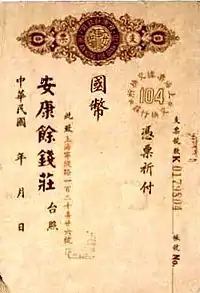 支票號數K 0179804
帳號No.
104
憑票祈付
國幣
此致上海寧波路一百二十弄廿六號
安康餘錢莊 台照
中華民國 年 月 日